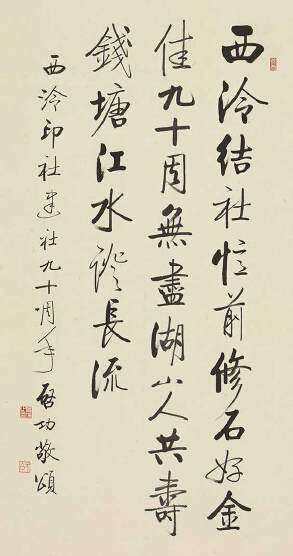 西泠結社忆前修石好金
佳九十周無盡湖山人共壽
錢塘江水證長流
西泠印社建社九十周年 啓功敬頌